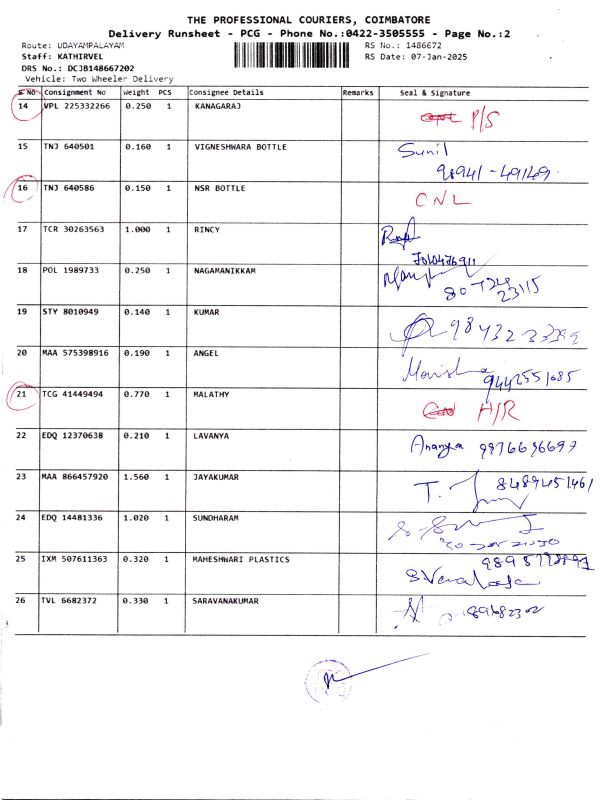 THE PROFESSIONAL COURIERS, COIMBATORE
Delivery Runsheet - PCG - Phone No.:0422-3505555 - Page No.:2
Route: UDAYAMPALAYAM RS No.: 1486672
Staff: KATHIRVEL RS Date: 07-Jan-2025
DRS No.: DCJB148667202
Vehicle: Two Wheeler Delivery
S NO Consignment No Weight PCS Consignee Details Remarks Seal & Signature
14 VPL 225332266 0.250 1 KANAGARAJ P/S
15 TNJ 640501 0.160 1 VIGNESHWARA BOTTLE Sunil
98941-49149
16 TNJ 640586 0.150 1 NSR BOTTLE CNL
17 TCR 30263563 1.000 1 RINCY
18 POL 1989733 0.250 1 NAGAMANIKKAM 80724
23115
19 STY 8010949 0.140 1 KUMAR
20 MAA 575398916 0.190 1 ANGEL
9442551085
21 TCG 41449494 0.770 1 MALATHY H/R
22 EDQ 12370638 0.210 1 LAVANYA Ananya
23 MAA 866457920 1.560 1 JAYAKUMAR T. 8489451461
24 EDQ 14481336 1.020 1 SUNDHARAM
25 IXM 507611363 0.320 1 MAHESHWARI PLASTICS
26 TVL 6682372 0.330 1 SARAVANAKUMAR